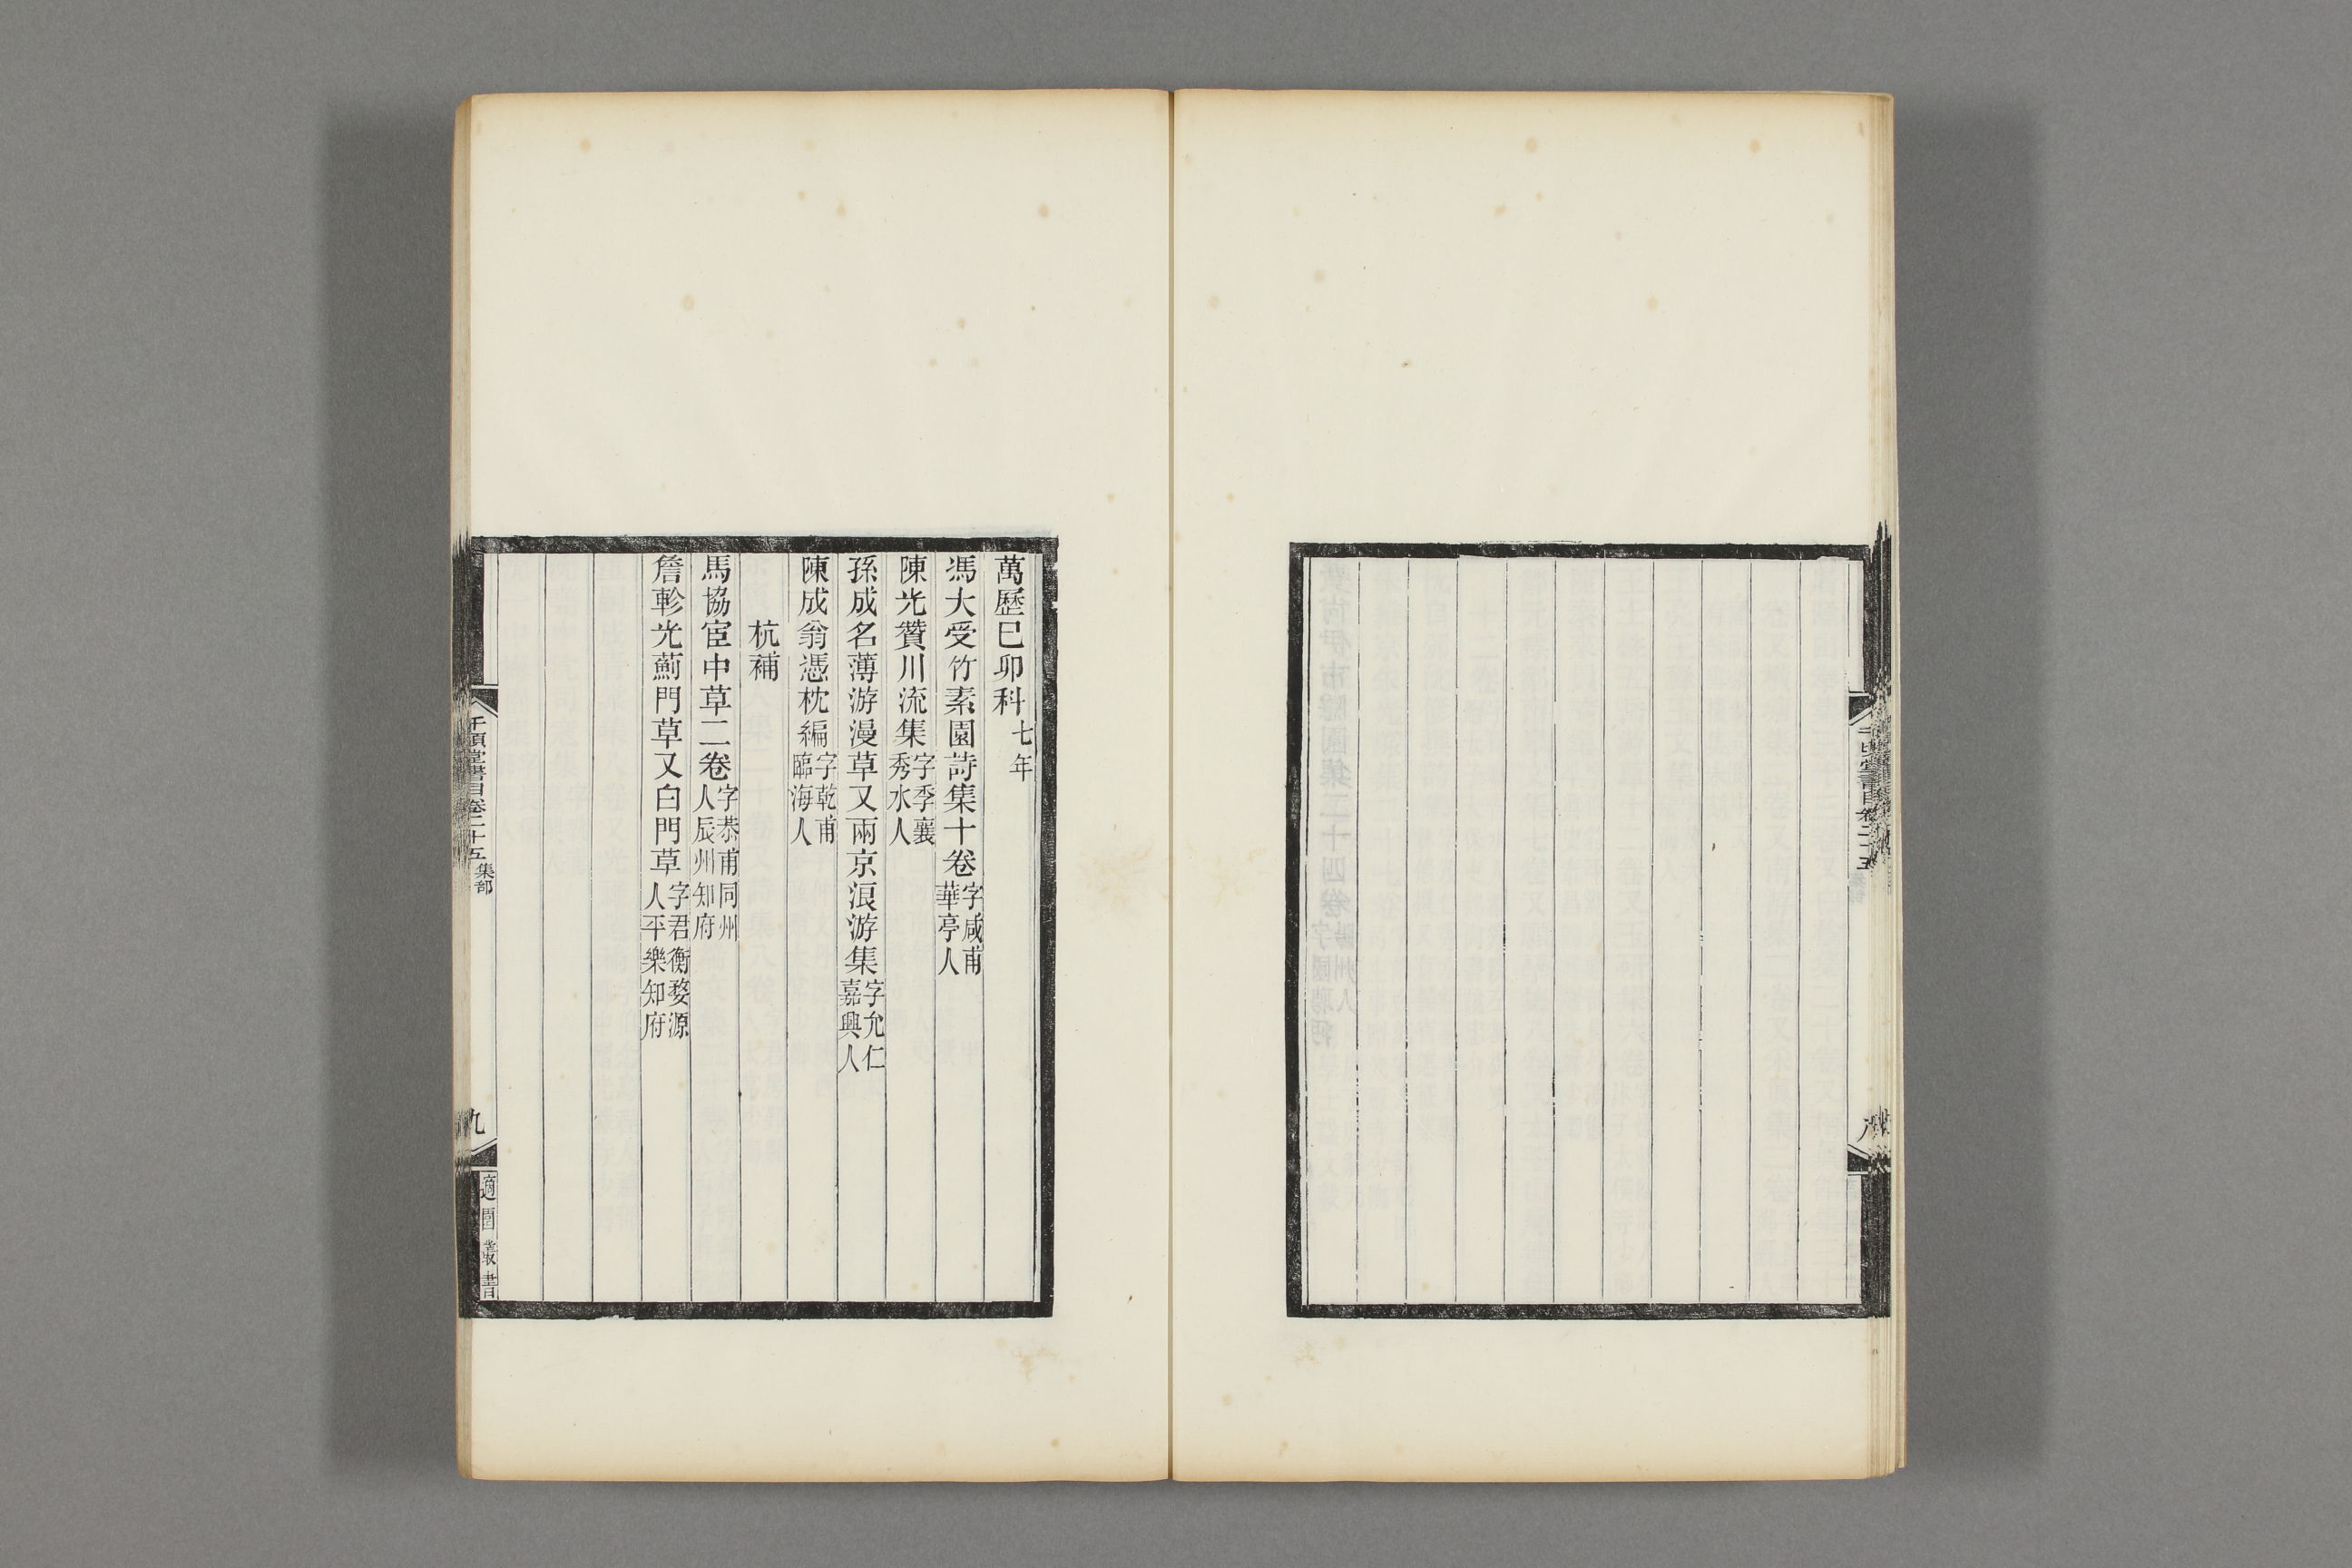 萬歷巳卯科七年
馮大受竹素園詩集十卷字咸甫華亭人
陳光贊川流集字季襄秀水人
孫成名薄游漫草又兩京浪游集字允仁嘉興人
陳成翁憑枕編字乾甫臨海人
杭補
馬協宦中草二卷字恭甫同州人辰州知府
詹軫光薊門草又白門草字君衡婺源人平樂知府
千頃堂書目卷二十五集部
九
適園叢書